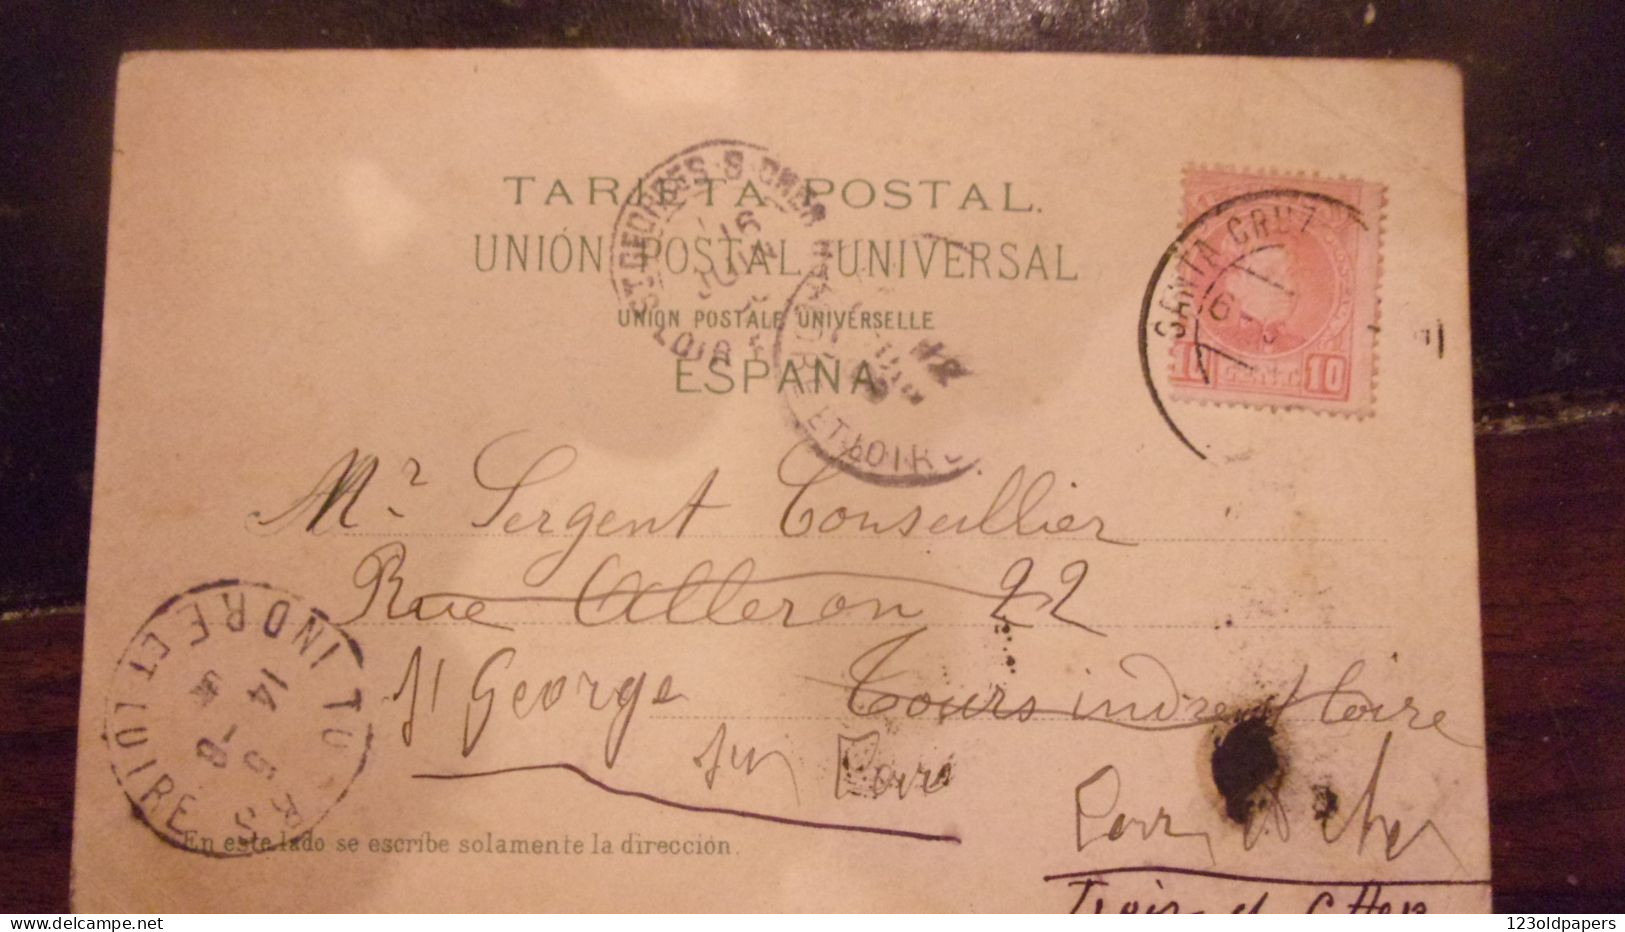 TARJETA POSTAL.
UNIÓN POSTAL UNIVERSAL
UNION POSTALE UNIVERSELLE
ESPAÑA
ST GEORGES S CHER
16
LOIR
ET LOIRE
SANTA CRUZ
10 10
Mr Sergent Conseillier
Rue Alleron 22
St George Tours indre et Loire
sur
TOURS INDRE ET LOIRE
14 - 8
En este lado se escribe solamente la dirección.
Loir et Cher
123oldpapers